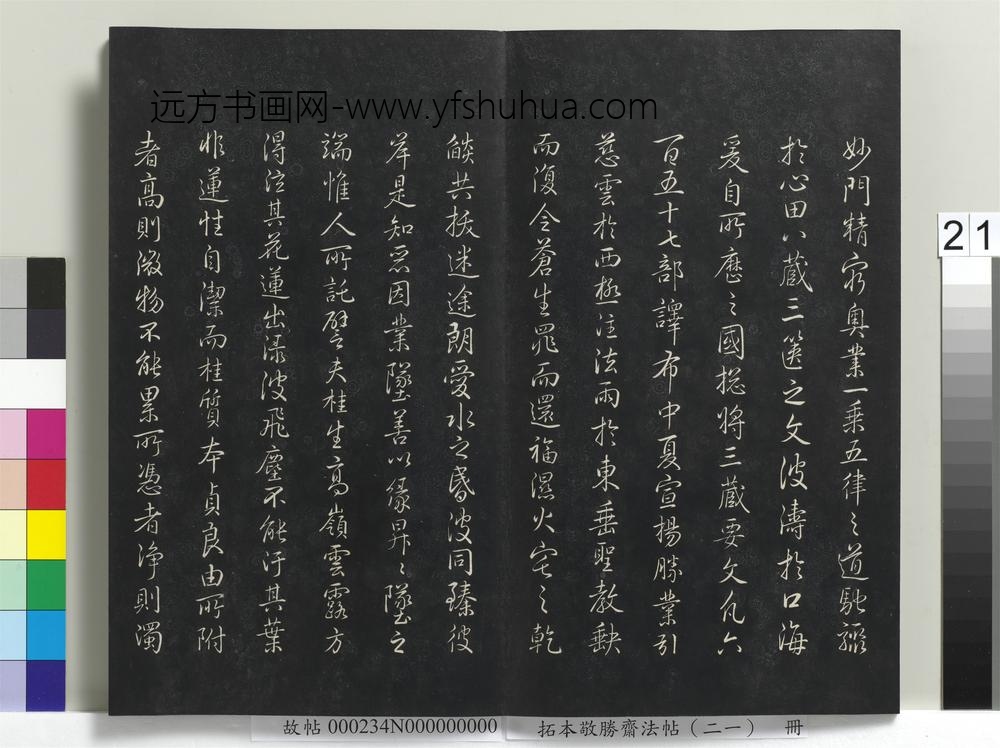 妙門精窮奧業一乘五律之道馳驟
於心田八藏三篋之文波濤於口海
爰自所歷之國揔將三藏要文凡六
百五十七部譯布中夏宣揚勝業引
慈雲於西極注法雨於東垂聖教缺
而復全蒼生罪而還福濕火宅之乾
燄共拔迷途朗愛水之昏波同臻彼
岸是知惡因業墜善以緣昇昇墜之
端惟人所託譬夫桂生高嶺雲露方
得泣其花蓮出淥波飛塵不能汙其葉
非蓮性自潔而桂質本貞良由所附
者高則微物不能累所憑者淨則濁
远方书画网-www.yfshuhua.com
21
故帖 000234N000000000 拓本敬勝齋法帖（二一） 冊